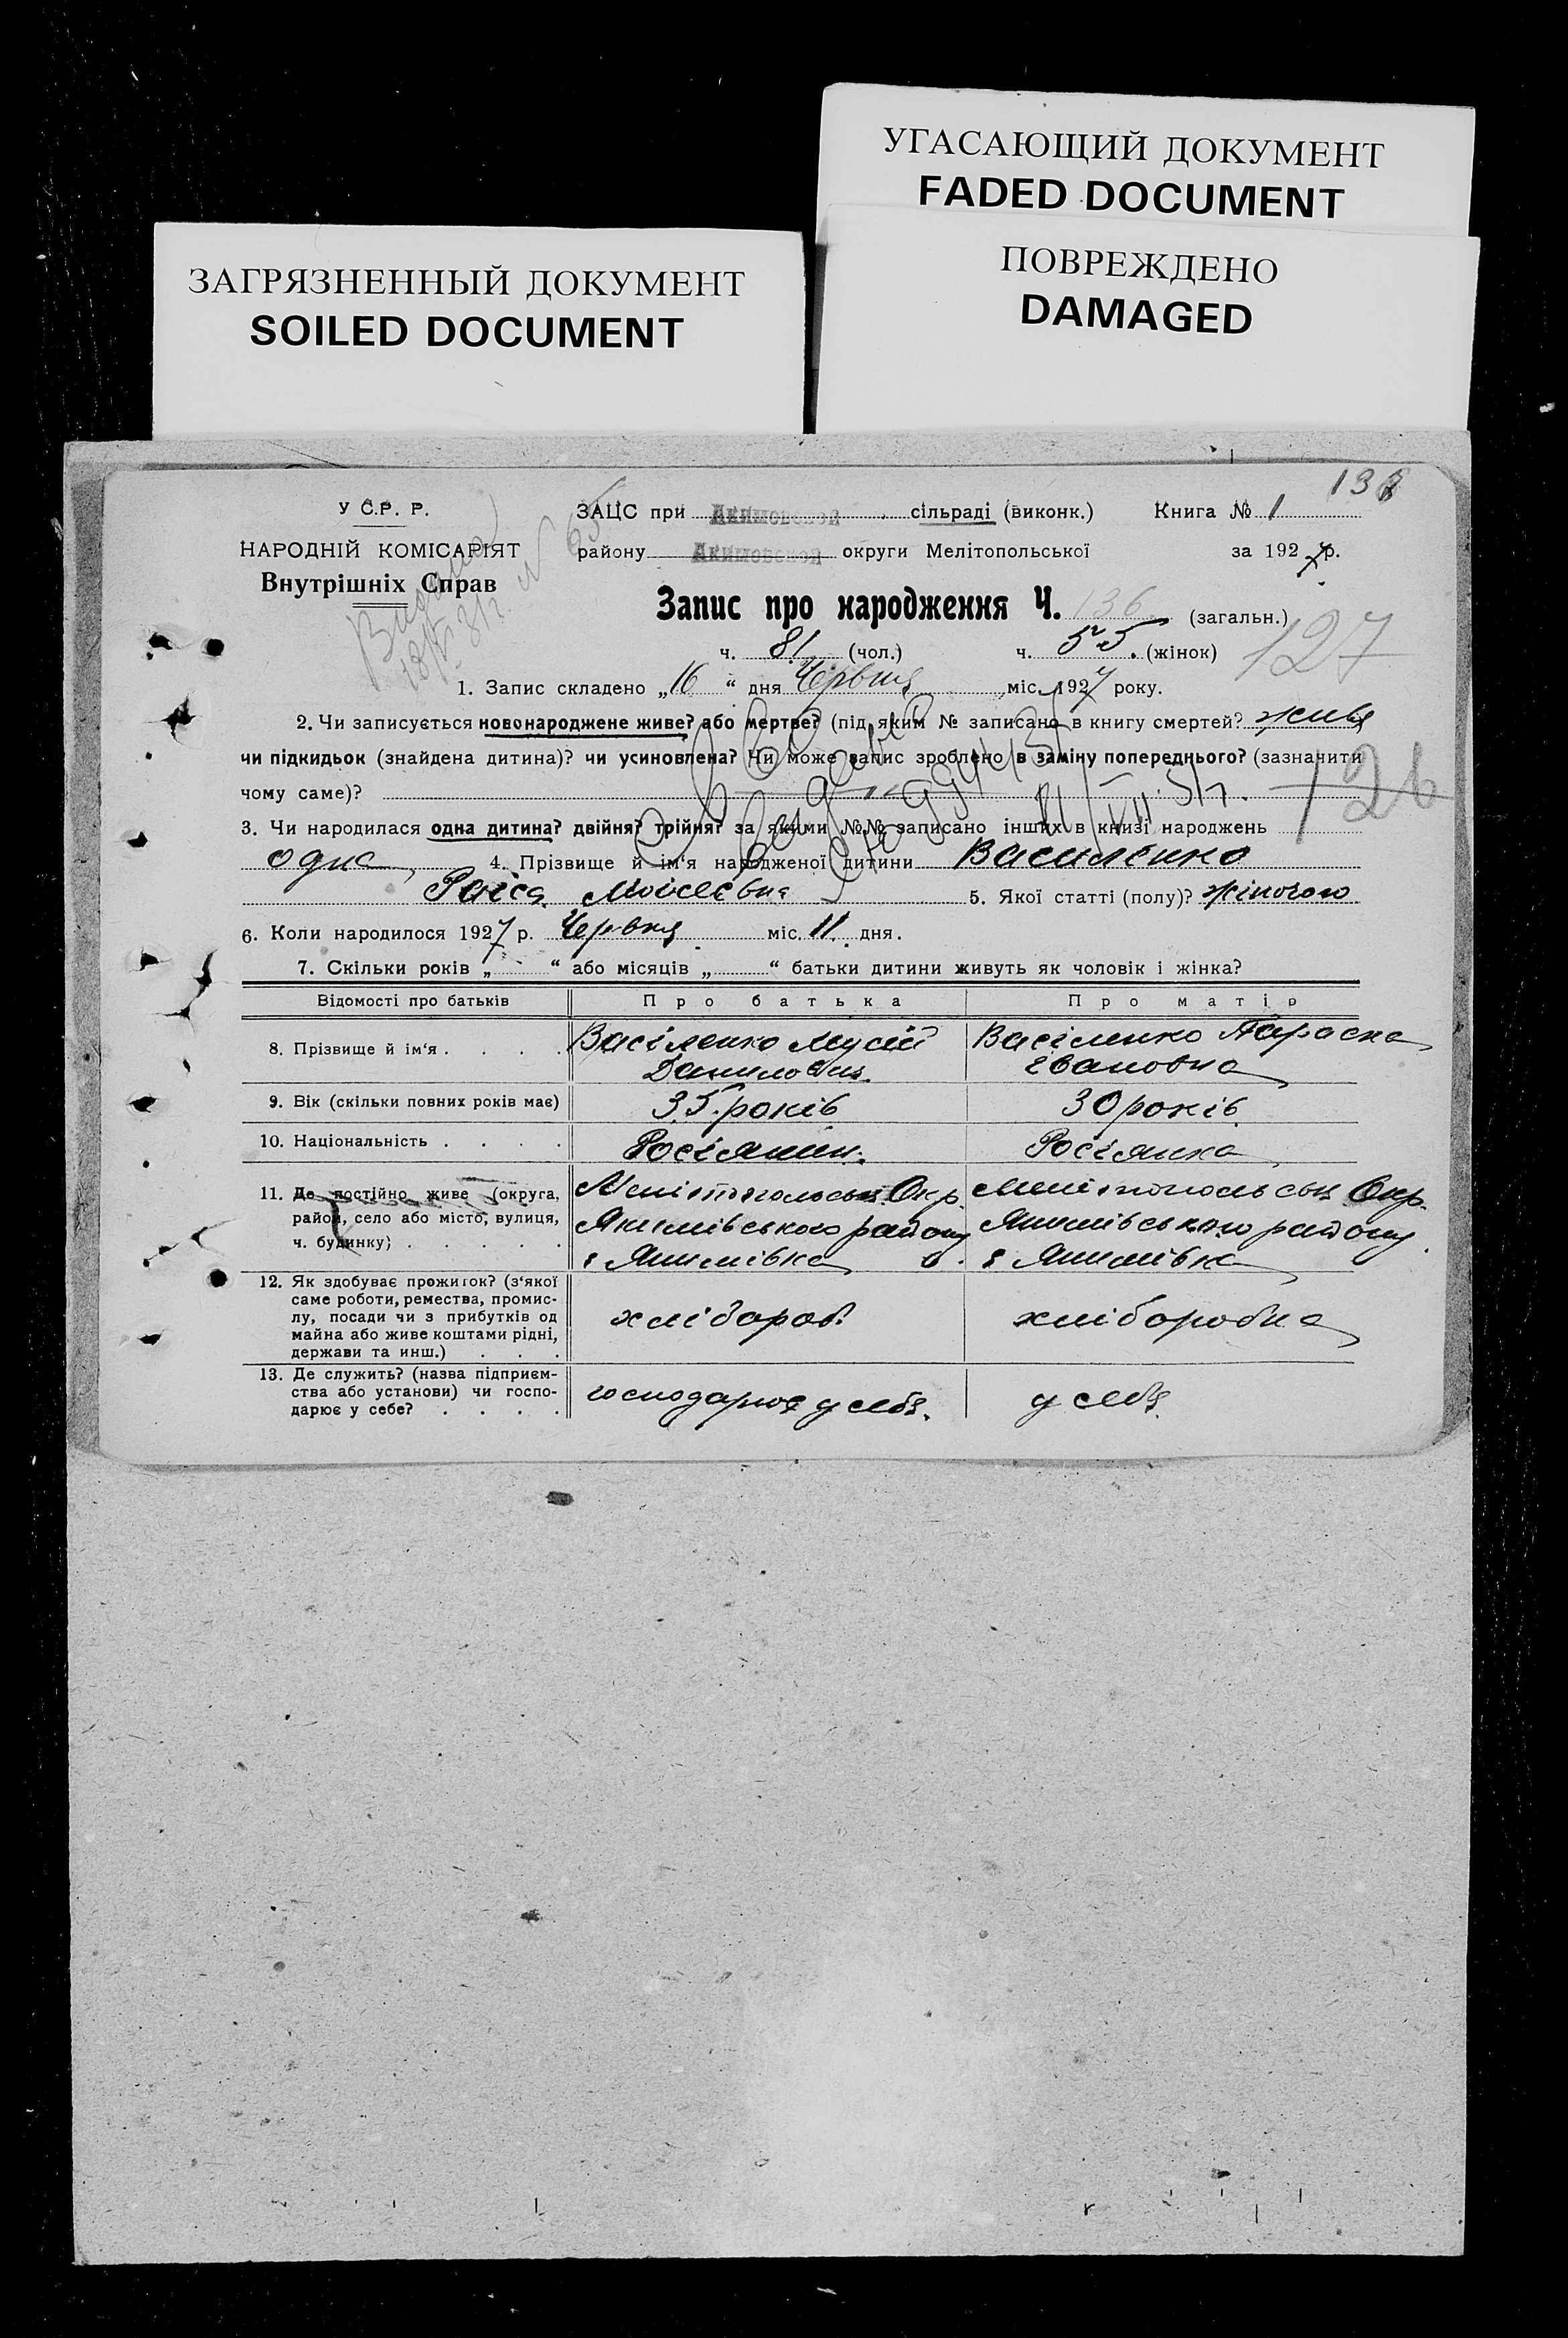 УГАСАЮЩИЙ ДОКУМЕНТ
FADED DOCUMENT
ПОВРЕЖДЕНО
DAMAGED
ЗАГРЯЗНЕННЫЙ ДОКУМЕНТ
SOILED DOCUMENT
У С.Р. Р.
НАРОДНІЙ КОМІСАРІЯТ
Внутрішніх Справ
ЗАЦС при Акимовской сільраді (виконк.) Книга № 1
району Акимовской округи Мелітопольської за 1927 р.
Запис про народження Ч. 136 (загальн.)
127
ч. 81 (чол.) ч. 55 (жінок)
1. Запис складено „16“ дня Червня міс. 1927 року.
2. Чи записується новонароджене живе? або мертве? (під яким № записано в книгу смертей? живе
чи підкидьок (знайдена дитина)? чи усиновлена? Чи може запис зроблено в заміну попереднього? (зазначити
чому саме)?
126
3. Чи народилася одна дитина? двійня? трійня? за якими №№ записано інших в книзі народжень
одна 4. Прізвище й ім‘я народженої дитини Василенко
Раїса Мойсеєвна 5. Якої статті (полу)? жіночого
6. Коли народилося 1927 р. Червня міс. 11 дня.
7. Скільки років „ “ або місяців „ “ батьки дитини живуть як чоловік і жінка?
Відомості про батьків Про батька Про матір
8. Прізвище й ім‘я . . . . Василенко Мусій Василенко Параска
Данилович Івановна
9. Вік (скільки повних років має) 35 років 30 років
10. Національність . . . . Росіянин. Росіянка
11. Де постійно живе (округа, Мелітопольськ. Окр. Мелітопольськ Окр.
район, село або місто, вулиця, Якимівського району Якимівського району
ч. будинку) . . . . . с Якимівка с Якимівка
12. Як здобуває прожиток? (з‘якої
саме роботи, ремества, промис-
лу, посади чи з прибутків од хлібороб. хліборобка
майна або живе коштами рідні,
держави та инш.) . . .
13. Де служить? (назва підприєм-
ства або установи) чи госпо- господарює у себя. у себя.
дарює у себе? . . . .